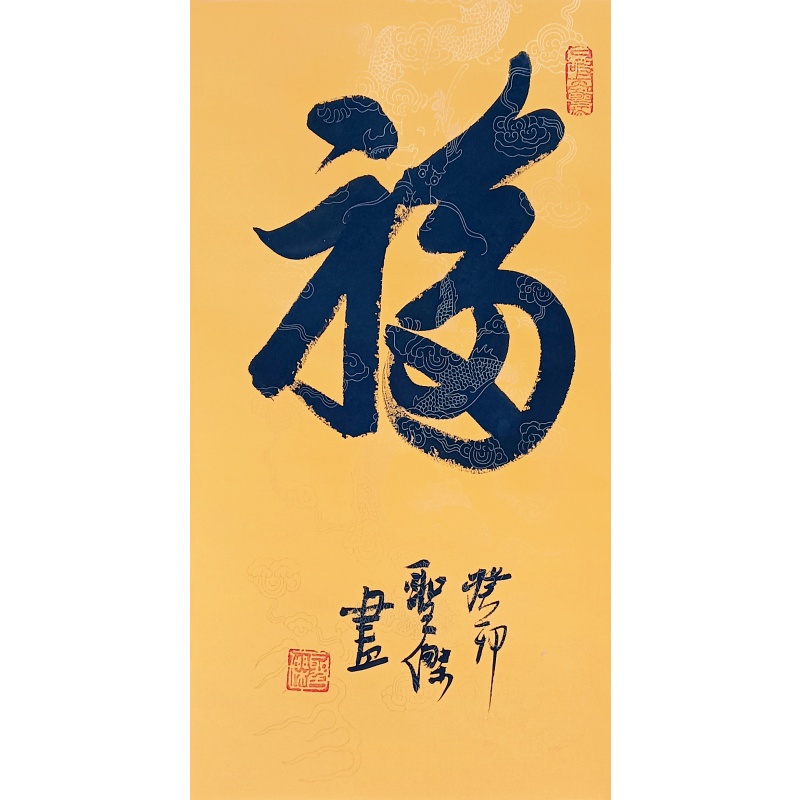 福
癸卯
聖傑
畫